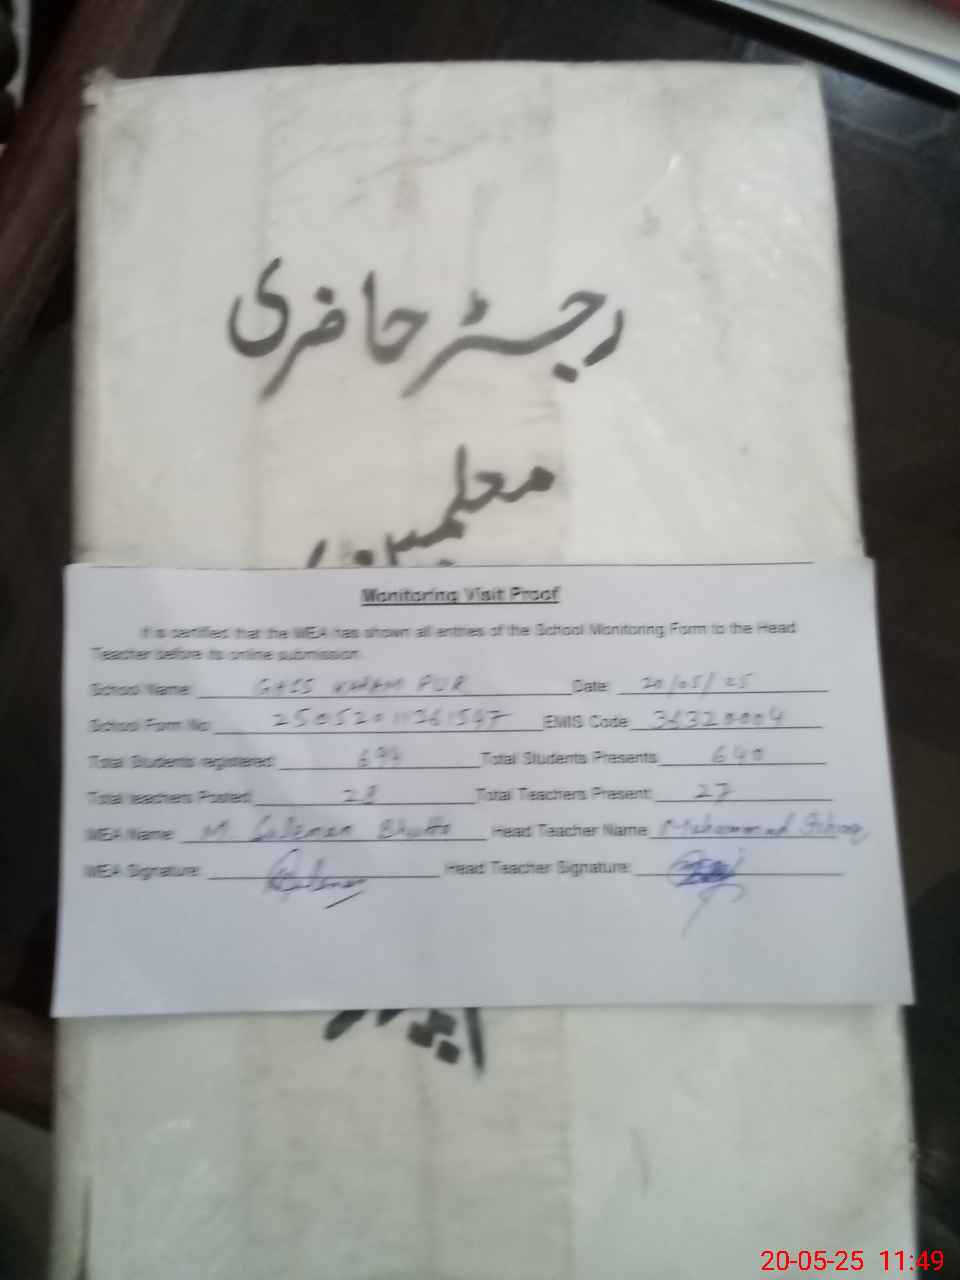 رجسٹر حاضری
معلمین
Monitoring Visit Proof
It is certified that the MEA has shown all entries of the School Monitoring Form to the Head
Teacher before its online submission.
School Name: GHSS KHAM PUR Date: 20/05/25
School Form No: 25052011361597 EMIS Code: 36320004
Total Students registered: 699 Total Students Presents: 640
Total teachers Posted: 28 Total Teachers Present: 27
MEA Name: M. Suleman Bhutta Head Teacher Name: Muhammad Ishaq
MEA Signature: Head Teacher Signature:
20-05-25 11:49